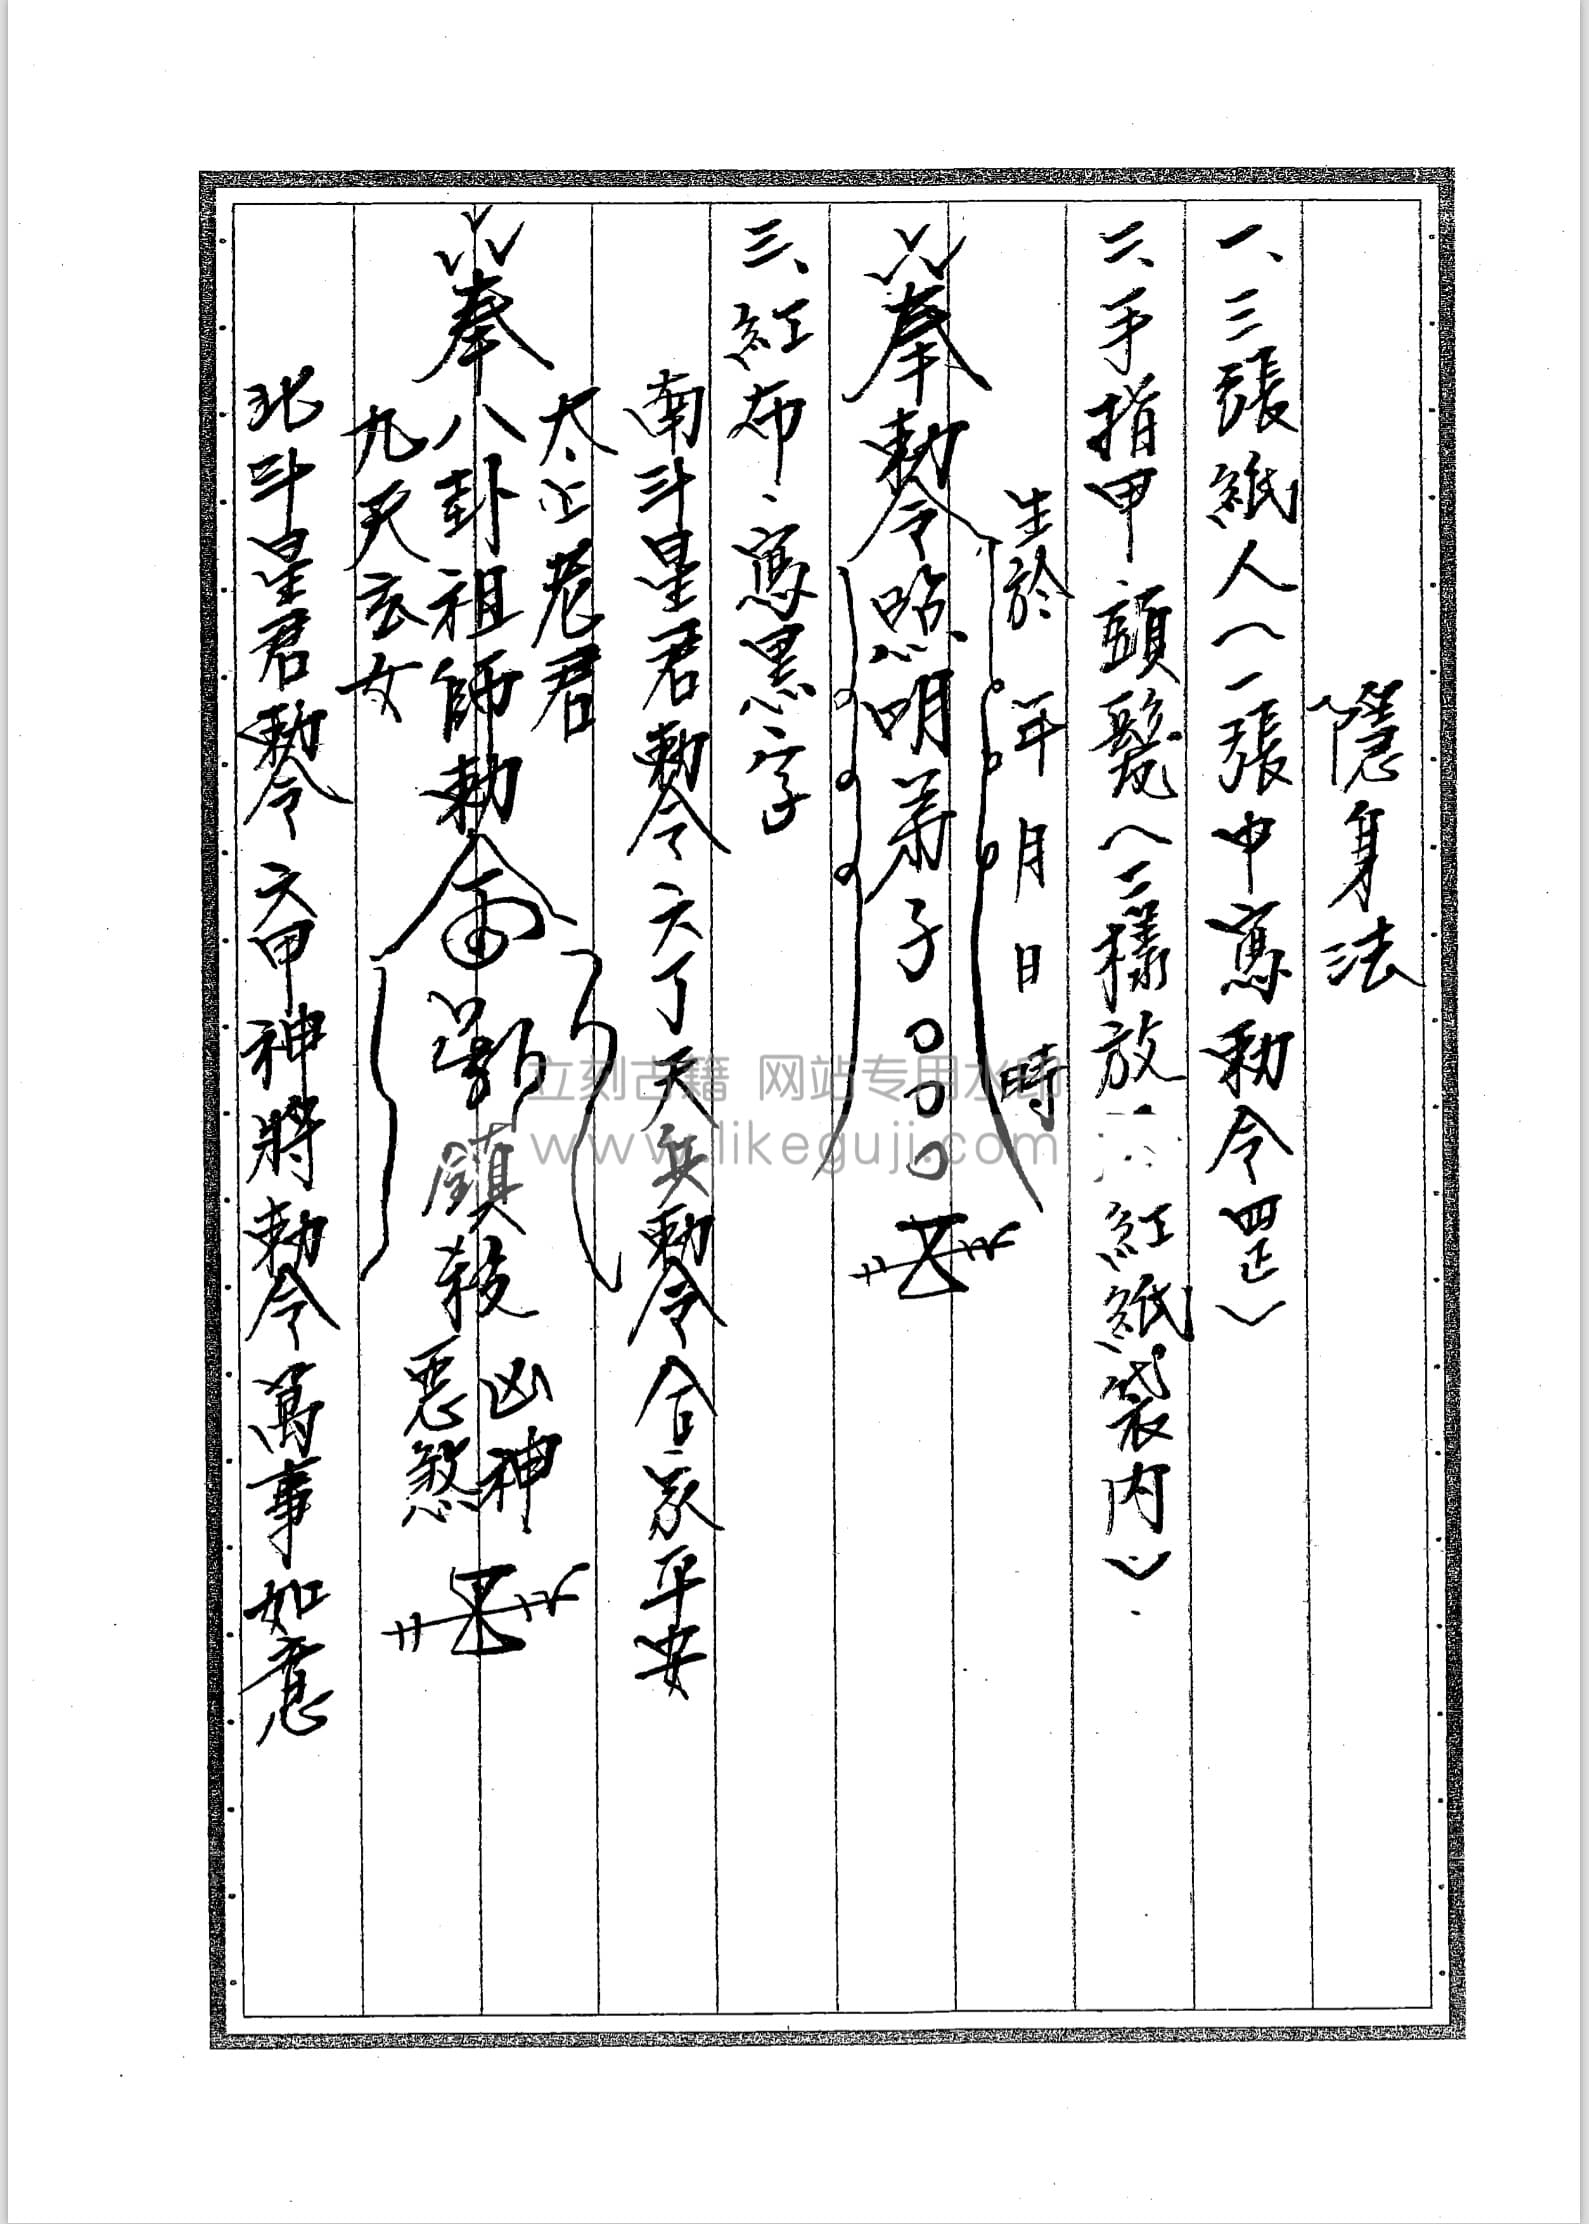 隱身法
一、三張紙人（一張中寫勅令罡）
二、手指甲頭髮（二樣放 紅紙袋內）
生於 年 月 日 時
奉勅令照明弟子〇〇〇
三、紅布、寫黑字
南斗星君勅令六丁天兵勅令合家平安
太上老君
奉八卦祖師勅令 鎮殺
凶神
惡煞
九天玄女
北斗星君勅令六甲神將勅令萬事如意
立刻古籍 网站专用水印
www.likeguji.com